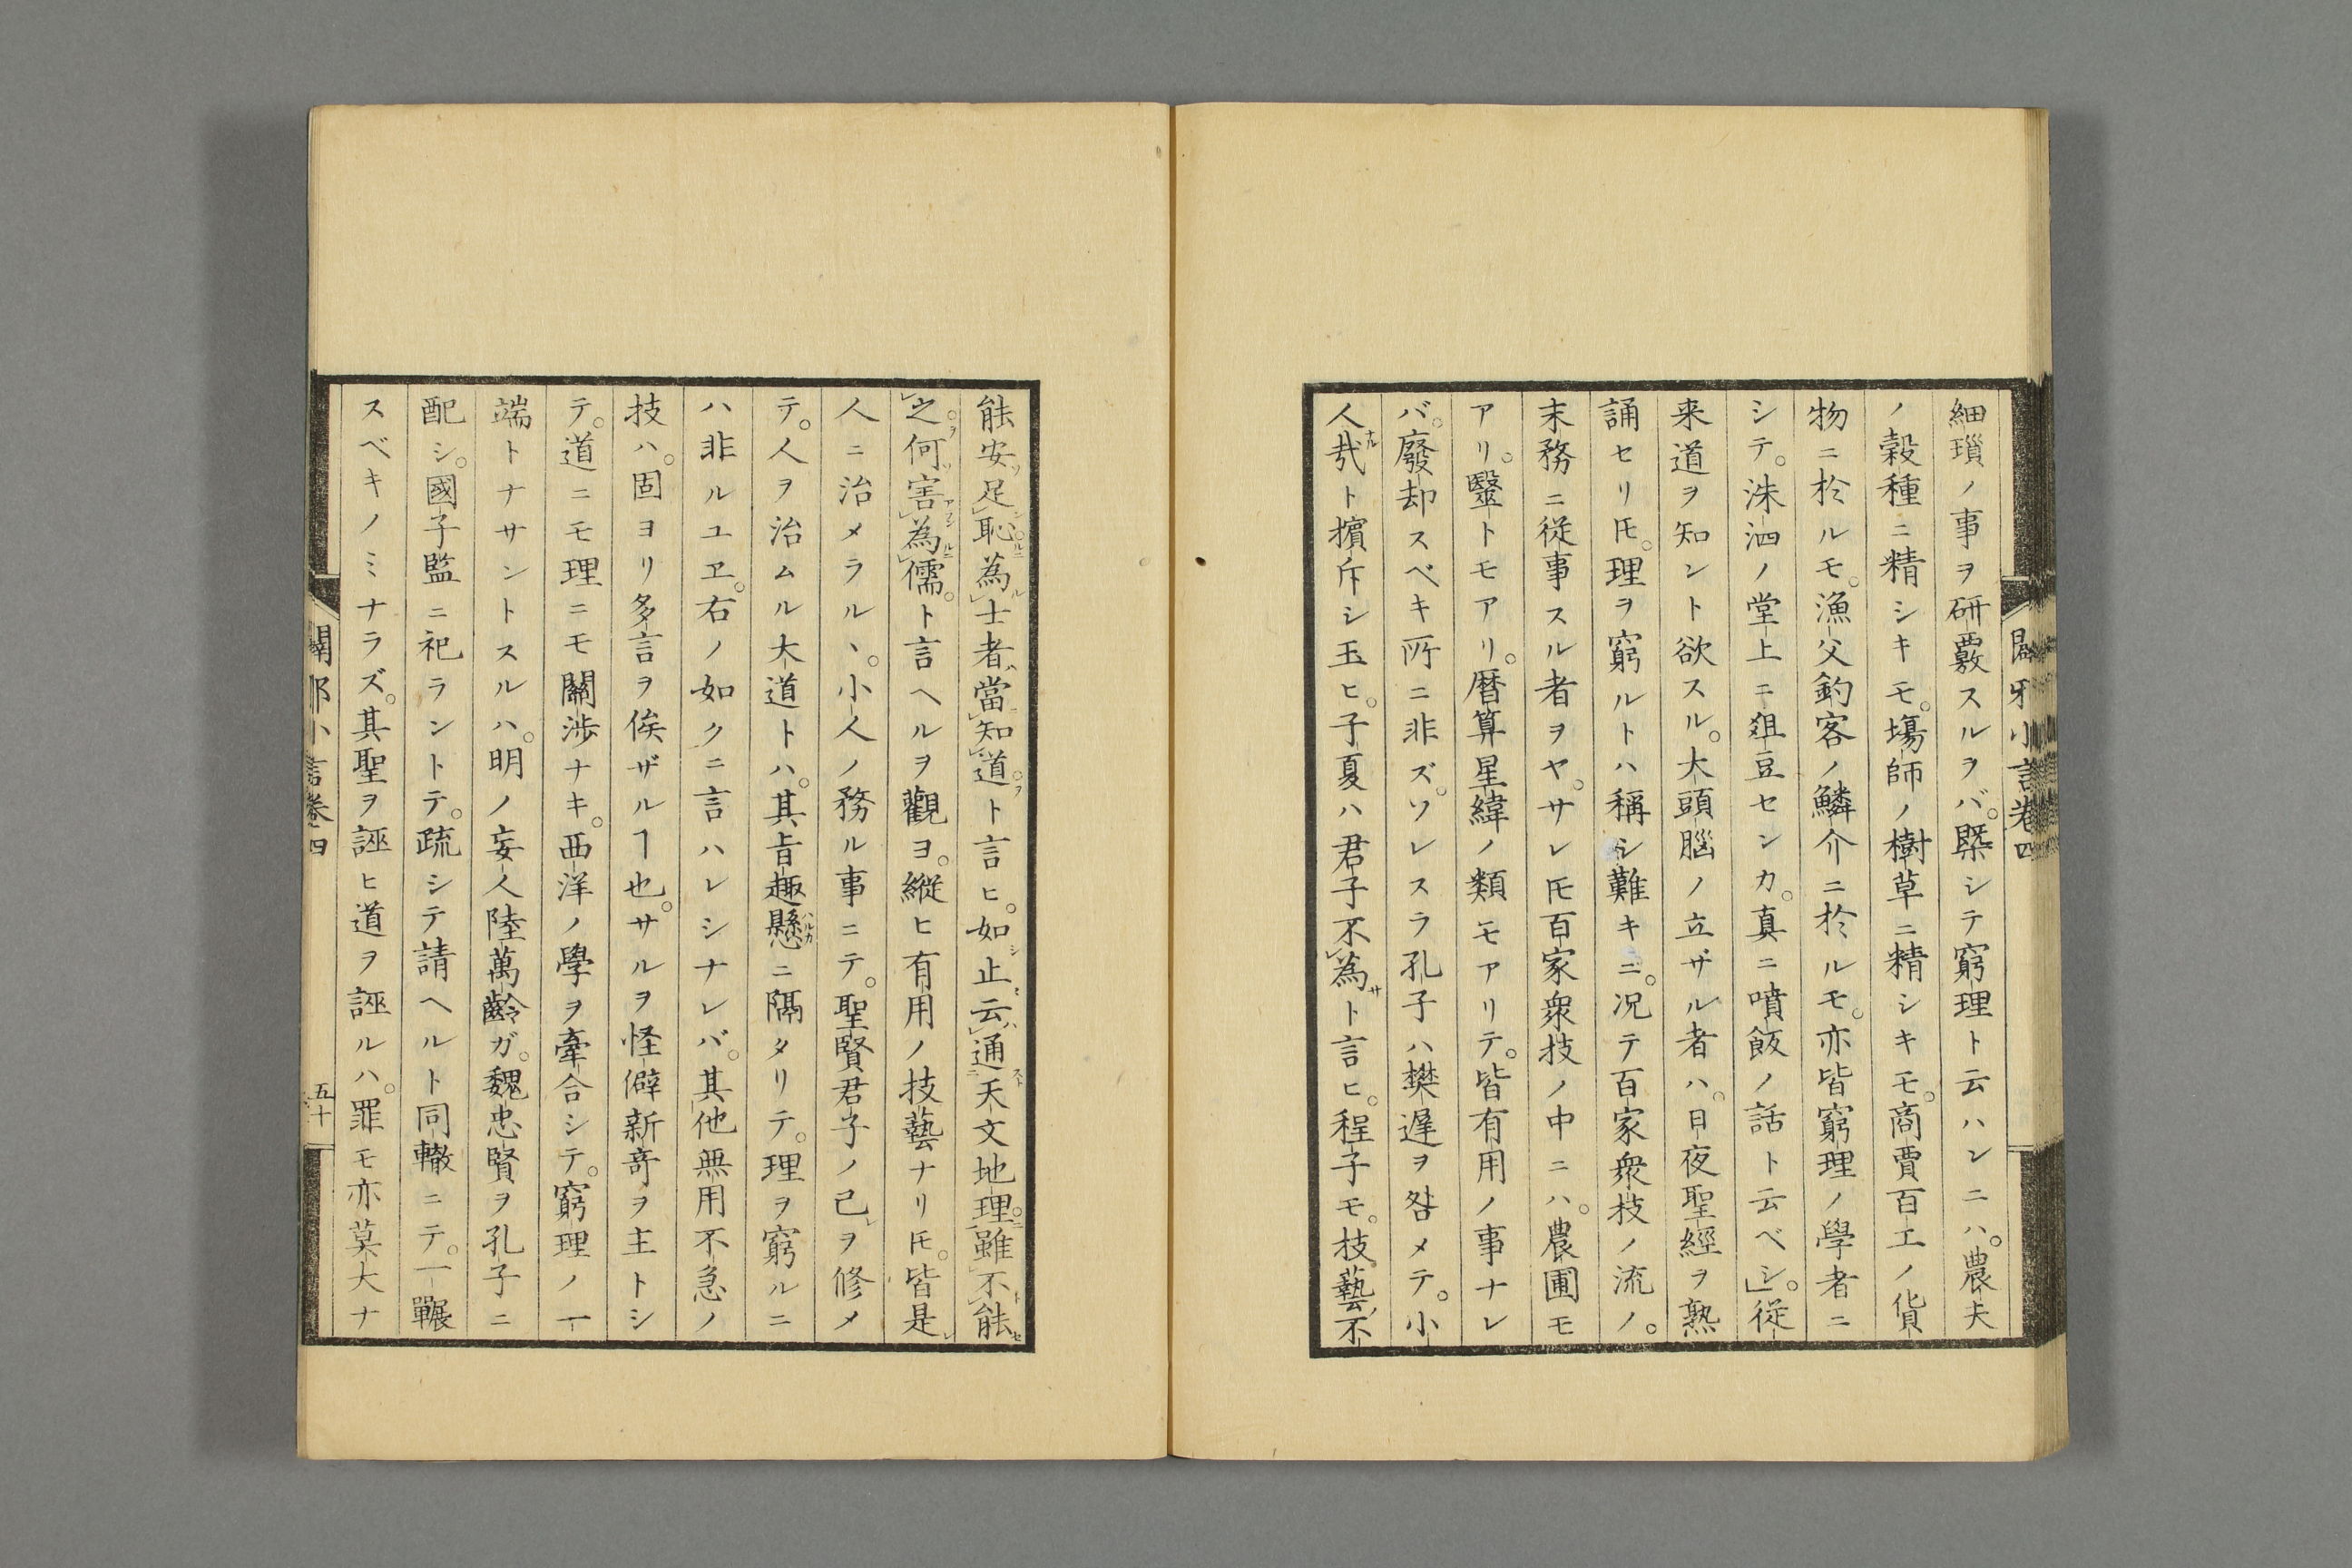 闢邪小言卷四
細瑣ノ事ヲ研覈スルヲバ。槩シテ窮理ト云ハンニハ。農夫
ノ穀種ニ精シキモ。塲師ノ樹草ニ精シキモ。商賈百工ノ貨
物ニ於ルモ。漁父釣客ノ鱗介ニ於ルモ。亦皆窮理ノ學者ニ
シテ。洙泗ノ堂上ニ俎豆センカ。真ニ噴飯ノ話ト云ベシ。」従
来道ヲ知ント欲スル。大頭腦ノ立ザル者ハ。日夜聖經ヲ熟
誦セリ𪜈。理ヲ窮ルトハ稱シ難キニ。况テ百家衆技ノ流ノ。
末務ニ従事スル者ヲヤ。サレ𪜈百家衆技ノ中ニハ。農圃モ
アリ。毉トモアリ。暦算星緯ノ類モアリテ。皆有用ノ事ナレ
バ。廢却スベキ所ニ非ズ。ソレスラ孔子ハ樊遅ヲ咎メテ。小
人ナル哉ト擯斥シ玉ヒ。子夏ハ君子不レ為サト言ヒ。程子モ。技藝ノ不
能安ソ足レ恥シルニ。為ル士者ハ當レ知レ道ヲト言ヒ。如シ止セ云ハレ通ストニ天文地理ニ一雖トレ不レ能セレ
之ヲ。何ソ害アランレ為ルニレ儒。ト言ヘルヲ觀ヨ。縱ヒ有用ノ技藝ナリ𪜈。皆是レ
人ニ治メラルヽ。小人ノ務ル事ニテ。聖賢君子ノ己レヲ修メ
テ。人ヲ治ムル大道トハ。其旨趣懸ハルカニ隔タリテ。理ヲ窮ルニ
ハ非ルユヱ。右ノ如クニ言ハレシナレバ。其他無用不急ノ
技ハ。固ヨリ多言ヲ俟ザルヿ也。サルヲ怪僻新竒ヲ主トシ
テ。道ニモ理ニモ關渉ナキ。西洋ノ學ヲ牽合シテ。窮理ノ一
端トナサントスルハ。明ノ妄人陸萬齡ガ。魏忠賢ヲ孔子ニ
配シ。國子監ニ祀ラントテ。疏シテ請ヘルト同轍ニテ。一囅
スベキノミナラズ。其聖ヲ誣ヒ道ヲ誣ルハ。罪モ亦莫大ナ
闢邪小言卷四
五十